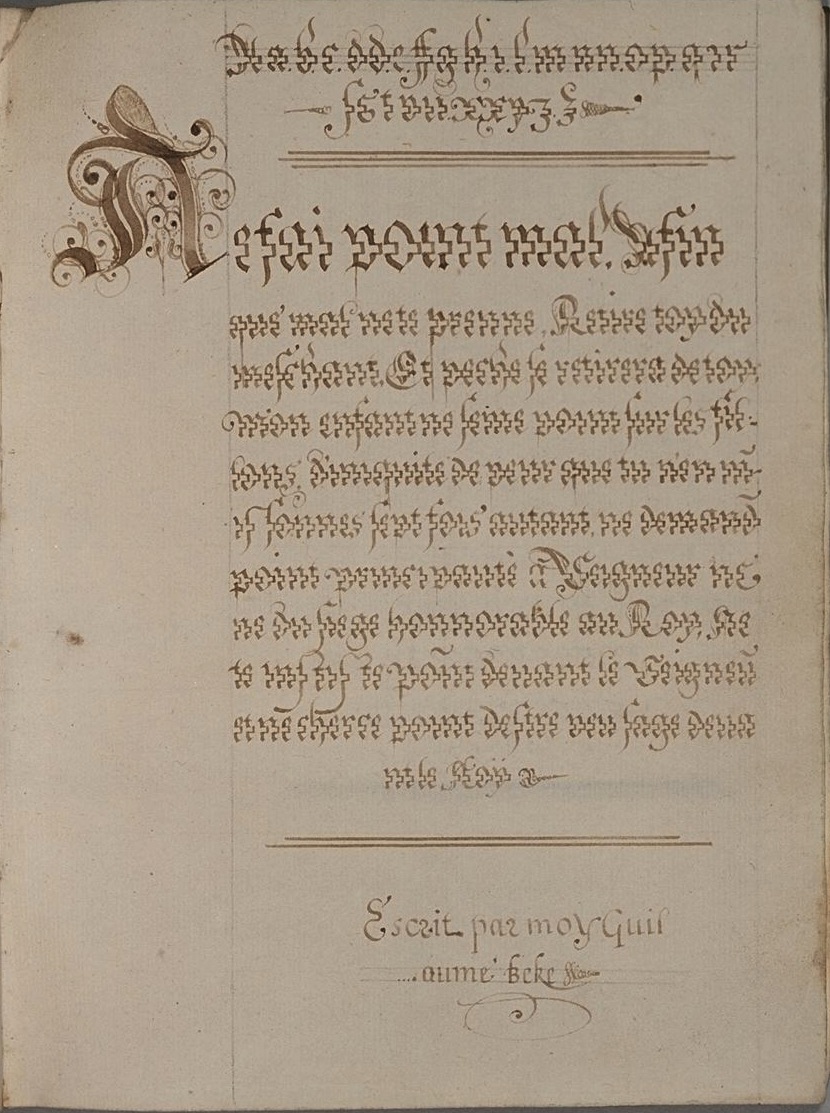 A a b c d d e ff g h i l m n n o p q r r
ſ s t v u x x y z z
Ne fai point mal, Afin
que mal ne te prenne, Retire toy du
meſchant, Et peche ſe retirera de toy,
mon enfant ne ſeme point ſur les ſil-
lons, d'iniquite de peur que tu n'en
ſept fois autant, ne demand
point principauté au Seigneur ne
ne du ſiege honnorable au Roy, Ne
te point deuant le Seigneur
et ne cherce point deſtre veu ſage deua
nt le Roÿ
Escrit par moy Guil
....aume beke